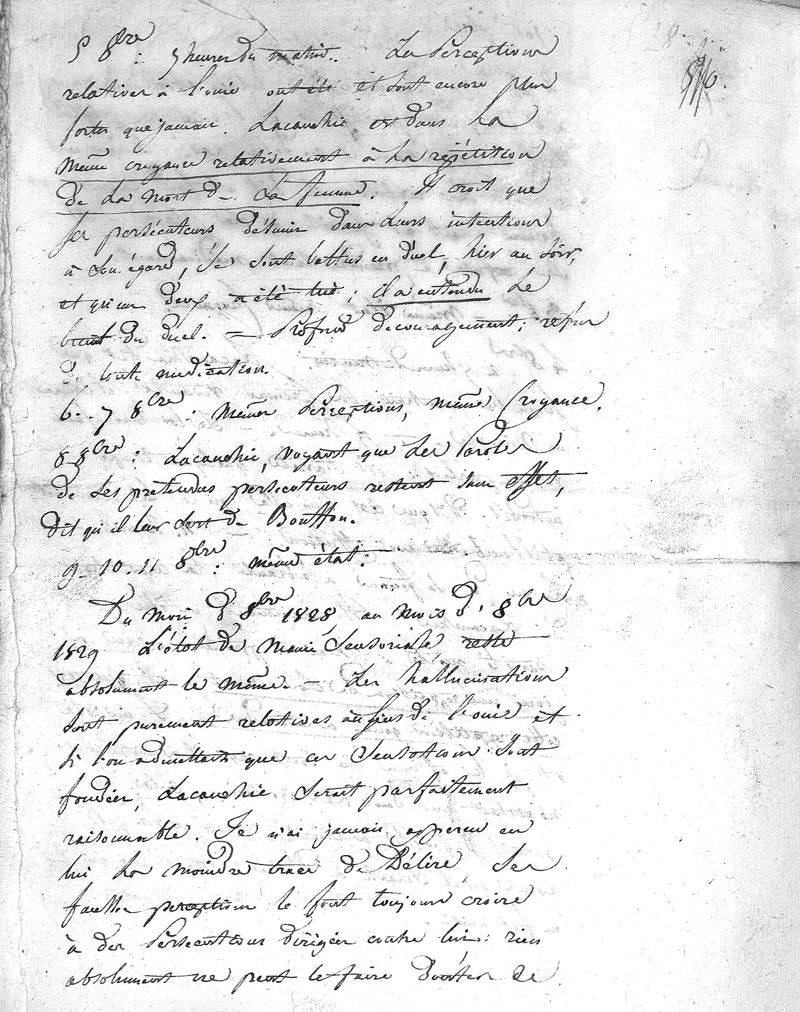 5 8bre : 5 heures du matin. Les Perceptions
relatives à l'ouie ont été et sont encore plus
fortes que jamais. Lacauchie est dans la
même croyance relativement à la répétition
de la mort de sa femme. Il croit que
ses persécuteurs désunis dans leurs intentions
à son égard, se sont battus en duel, hier au soir,
et qu'un d'eux a été tué ; il a entendu le
bruit du duel. — Profond découragement ; refus
de toute médication.
6 - 7 8bre : mêmes Perceptions, même Croyance.
8 8bre : Lacauchie, voyant que les Paroles
de ses prétendus persécuteurs restent sans effet,
dit qu'il leur sert de Bouffon.
9 - 10. 11 8bre : même état :
Du mois d' 8bre 1828, au mois d' 8bre
1829 L'état de manie sensoriale, reste
absolument le même. — Les hallucinations
sont purement relatives au sens de l'ouie et
si l'on admettait que ces sensations sont
fondées, Lacauchie serait parfaitement
raisonnable. Je n'ai jamais apperçu en
lui la moindre trace de Délire, Ses
fausses perceptions le font toujours croire
à des Persécutions dirigées contre lui : rien
absolument ne peut le faire douter de